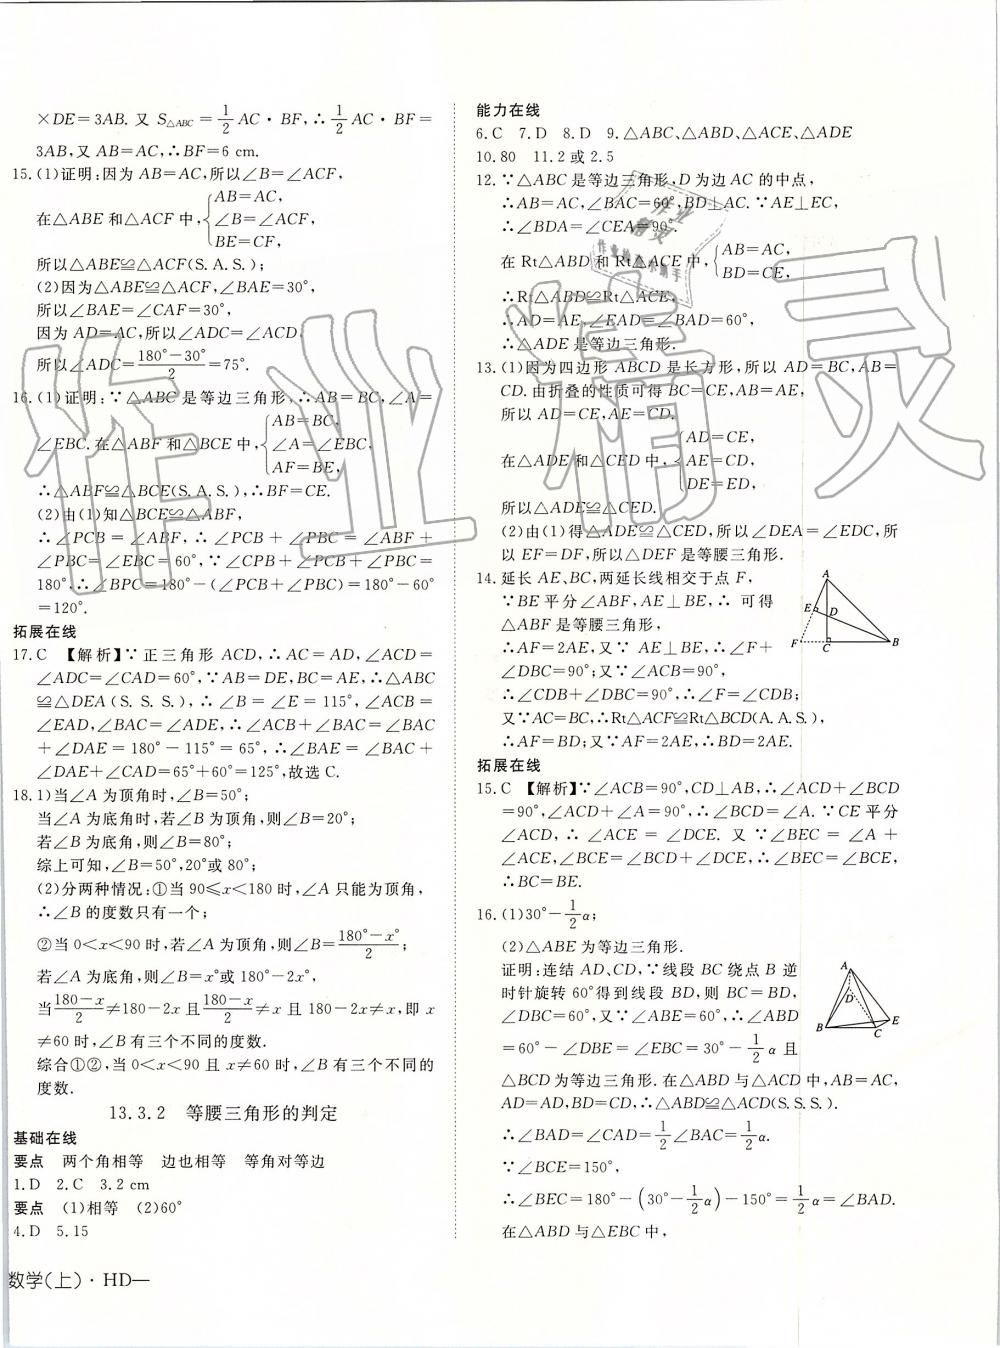 ×DE=3AB. 又 S△ABC = 1/2 AC · BF, ∴ 1/2 AC · BF =
3AB, 又 AB=AC, ∴BF=6 cm.
15. (1)证明:因为 AB=AC,所以∠B=∠ACF,
在△ABE 和△ACF 中, { AB=AC,
∠B=∠ACF,
BE=CF,
所以△ABE≌△ACF(S.A.S.);
(2)因为△ABE≌△ACF,∠BAE=30°,
所以∠BAE=∠CAF=30°,
因为 AD=AC,所以∠ADC=∠ACD,
所以∠ADC= (180°-30°)/2 =75°.
16. (1)证明:∵△ABC 是等边三角形,∴AB=BC,∠A=
∠EBC. 在△ABF 和△BCE 中, { AB=BC,
∠A=∠EBC,
AF=BE,
∴△ABF≌△BCE(S.A.S.),∴BF=CE.
(2)由(1)知△BCE≌△ABF,
∴∠PCB=∠ABF,∴∠PCB+∠PBC=∠ABF+
∠PBC=∠EBC=60°,∵∠CPB+∠PCB+∠PBC=
180°,∴∠BPC=180°-(∠PCB+∠PBC)=180°-60°
=120°.
拓展在线
17. C 【解析】∵正三角形 ACD,∴AC=AD,∠ACD=
∠ADC=∠CAD=60°,∵AB=DE,BC=AE,∴△ABC
≌△DEA(S.S.S.),∴∠B=∠E=115°,∠ACB
=∠EAD,∠BAC=∠ADE,∴∠ACB+∠BAC=∠BAC
+∠DAE=180°-115°=65°,∴∠BAE=∠BAC+
∠DAE+∠CAD=65°+60°=125°,故选 C.
18. 1)当∠A 为顶角时,∠B=50°;
当∠A 为底角时,若∠B 为顶角,则∠B=20°;
若∠B 为底角,则∠B=80°;
综上可知,∠B=50°,20°或 80°;
(2)分两种情况:①当 90≤x<180 时,∠A 只能为顶角,
∴∠B 的度数只有一个;
②当 0<x<90 时,若∠A 为顶角,则∠B= (180°-x°)/2 ;
若∠A 为底角,则∠B=x°或 180°-2x°,
当 (180-x)/2 ≠180-2x 且 (180-x)/2 ≠x 且 180-2x≠x,即 x
≠60 时,∠B 有三个不同的度数.
综合①②,当 0<x<90 且 x≠60 时,∠B 有三个不同的
度数.
13.3.2 等腰三角形的判定
基础在线
要点 两个角相等 边也相等 等角对等边
1. D 2. C 3. 2 cm
要点 (1)相等 (2)60°
4. D 5. 15
数学(上)· HD—
能力在线
6. C 7. D 8. D 9. △ABC、△ABD、△ACE、△ADE
10. 80 11. 2 或 2.5
12. ∵△ABC 是等边三角形,D 为边 AC 的中点,
∴AB=AC,∠BAC=60°,BD⊥AC. ∵AE⊥EC,
∴∠BDA=∠CEA=90°.
在 Rt△ABD 和 Rt△ACE 中, { AB=AC,
BD=CE,
∴Rt△ABD≌Rt△ACE,
∴AD=AE,∠EAD=∠BAD=60°,
∴△ADE 是等边三角形.
13. (1)因为四边形 ABCD 是长方形,所以 AD=BC,AB=
CD. 由折叠的性质可得 BC=CE,AB=AE,
所以 AD=CE,AE=CD.
在△ADE 和△CED 中, { AD=CE,
AE=CD,
DE=ED,
所以△ADE≌△CED.
(2)由(1)得△ADE≌△CED,所以∠DEA=∠EDC,所
以 EF=DF,所以△DEF 是等腰三角形.
14. 延长 AE、BC,两延长线相交于点 F,
∵BE 平分∠ABF,AE⊥BE,∴可得
△ABF 是等腰三角形,
∴AF=2AE,又∵AE⊥BE,∴∠F+
∠DBC=90°;又∵∠ACF=90°,
∴∠CDB+∠DBC=90°,∴∠F=∠CDB;
又∵AC=BC,∴Rt△ACF≌Rt△BCD(A.A.S.),
∴AF=BD;又∵AF=2AE,∴BD=2AE.
A
E
D
F
C
B
拓展在线
15. C 【解析】∵∠ACB=90°,CD⊥AB,∴∠ACD+∠BCD
=90°,∠ACD+∠A=90°,∴∠BCD=∠A. ∵CE 平分
∠ACD,∴∠ACE=∠DCE. 又∵∠BEC=∠A+
∠ACE,∠BCE=∠BCD+∠DCE,∴∠BEC=∠BCE,
∴BC=BE.
16. (1)30°- 1/2 α;
(2)△ABE 为等边三角形.
证明:连结 AD、CD,∵线段 BC 绕点 B 逆
时针旋转 60°得到线段 BD,则 BC=BD,
∠DBC=60°,又∵∠ABE=60°,∴∠ABD
=60°-∠DBE=∠EBC=30°- 1/2 α 且
△BCD 为等边三角形. 在△ABD 与△ACD 中,AB=AC,
AD=AD,BD=CD,∴△ABD≌△ACD(S.S.S.).
∴∠BAD=∠CAD= 1/2 ∠BAC= 1/2 α.
∵∠BCE=150°,
∴∠BEC=180°-(30°- 1/2 α)-150°= 1/2 α=∠BAD.
在△ABD 与△EBC 中,
A
D
B
C
E
作业精灵